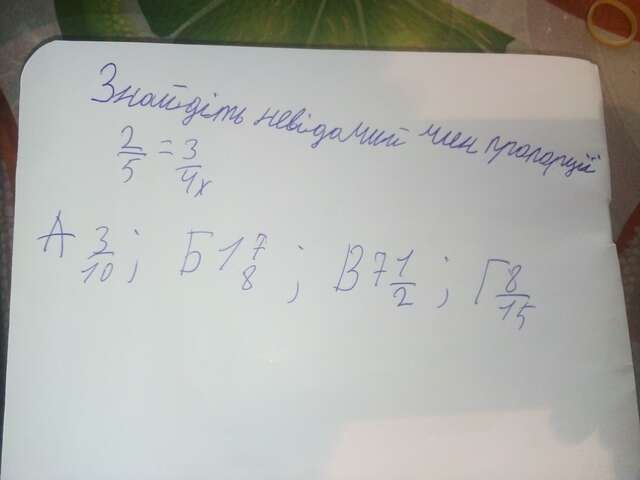 Знайдіть невідомий член пропорції
2/5 = 3/4x
А 3/10; Б 1 7/8; В 7 1/2; Г 8/15